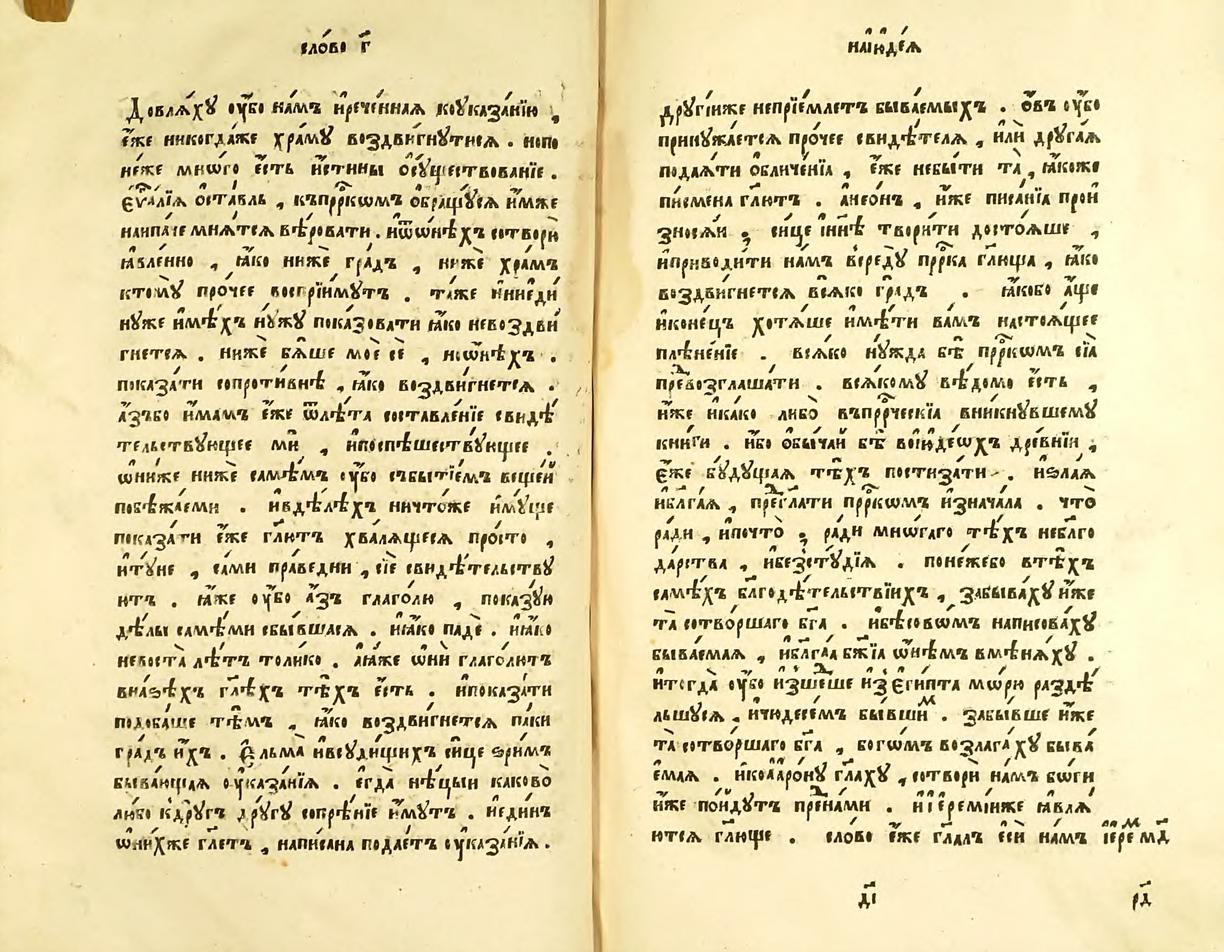 сло́во г҃
Довлѧ́хꙋ ᲂу҆́бо на́мъ и҆рече́ннаѧ коуказа́нїю ,
є҆́же никогда́же хра́мꙋ воздви́гнꙋтисѧ . нопо
не́же мно́гѡ є҆́сть и҆́стины ѻ҆сꙋществова́нїе .
є҆ѵⷢ҇а́лїѧ ѻ҆ста́вль , къпрⷪ҇ркѡмъ ѻ҆бращꙋ́сѧ и҆́мже
наипа́че мнѧ́тсѧ вѣ́ровати . иѿѡ́нѣхъ сотворю̀
ꙗ҆вле́нно , ꙗ҆́кѡ нижѐ гра́дъ , нижѐ хра́мъ
ктомꙋ̀ про́чее воспрїи́мꙋтъ . та́же ниеди
нꙋ́же и҆мѣ́хъ нꙋ́жꙋ показова́ти ꙗ҆́кѡ невоздви́
гнетсѧ . нижѐ бѧ́ше моѐ сѐ , нѡ́нѣхъ .
показа́ти сопроти́внѣ , ꙗ҆́кѡ воздви́гнетсѧ .
а҆́зъбо и҆́мамъ є҆́же ѿлѣ́та составле́нїе свидѣ́
тельствꙋющее мѝ , и҆поспѣ́шествꙋющее .
ѡ҆ни́же нижѐ самѣ́мъ ᲂу҆́бо събытїе́мъ веще́й
побѣжа́еми . и҆вдѣ́лѣхъ ничто́же и҆мꙋ́ще
показа́ти є҆́же гл҃ютъ хвалѧ́щесѧ про́сто ,
и҆тꙋ́не , са́ми пра́ведни , сїѐ свидѣ́тельствꙋ
итъ . ꙗ҆́же ᲂу҆́бо а҆́зъ глаго́лю , показꙋ́ю
дѣ́лы самѣ́ми сбы́вшаѧсѧ . и҆ꙗ҆́кѡ падѐ . и҆ꙗ҆́кѡ
невоста̀ лѣ́тъ толи́ко . а҆ꙗ҆́же ѡ҆нѝ глаго́лютъ
внаѕѣ́хъ гл҃ѣхъ тѣ́хъ є҆́сть . и҆показа́ти
подоба́ше тѣ́мъ , ꙗ҆́кѡ воздви́гнетсѧ па́ки
гра́дъ и҆́хъ . Е҆льма̀ и҆всꙋди́щихъ си́це ѕри́мъ
быва́ющаѧ ᲂу҆каза́нїѧ . є҆гда̀ нѣ́цыи каково̀
либо кдрꙋ́гъ дрꙋ́гꙋ сопрѣ́нїе и҆́мꙋтъ . и҆еди́нъ
ѡ҆ни́хже гл҃етъ , напи́сана подае́тъ ᲂу҆каза́нїѧ .
наі҆ꙋде́ѧ
дрꙋгі́иже непрїе́млетъ быва́емыхъ . ѻ҆́въ ᲂу҆́бо
принꙋжа́етсѧ про́чее свидѣ́телѧ , и҆лѝ дрꙋга́ѧ
подаѧ́ти ѻ҆бличе́нїѧ , є҆́же небы́ти та̀ , ꙗ҆́коже
пи́смена гл҃ютъ . а҆нео́нъ , и҆́же писа́нїѧ прои
зносѧ́и ; си́це і҆ннѣ̀ твори́ти досто́ѧше ,
и҆приводи́ти на́мъ вереду̀ прⷪ҇рка гл҃юща , ꙗ҆́кѡ
воздви́гнетсѧ всѧ́ко гра́дъ . ꙗ҆́кобо а҆́ще
и҆коне́цъ хотѧ́ше и҆мѣ́ти ва́мъ настоѧ́щее
плѣне́нїе . всѧ́ко нꙋ́жда бѣ̀ прⷪ҇ркѡмъ сїѧ̀
превозглаша́ти . всѧ́комꙋ вѣ́домо є҆́сть ,
и҆́же и҆ка́ко либо̀ въпрⷪ҇рческїѧ вни́кнꙋвшемꙋ
кни́ги . и҆́бо ѻ҆бы́чай бѣ̀ воі҆ꙋде́ѡхъ дре́внїи ,
є҆́же бꙋ́дꙋщаѧ тѣ́хъ постиза́ти . и҆ѕла́ѧ
и҆бл҃га́ѧ , прегл҃ати прⷪ҇ркѡмъ и҆знача́ла . что̀
ра́ди , и҆почто̀ ; ра́ди мно́гаго тѣ́хъ небл҃го
да́рства , и҆безстꙋ́дїѧ . поне́жебо втѣ́хъ
самѣ́хъ бл҃годѣ́тельствїихъ , забыва́хꙋ и҆́же
та̀ сотво́ршаго бг҃а . и҆бѣ́совѡмъ написова́хꙋ
быва́емаѧ , и҆бл҃га́ѧ бж҃їѧ ѡ҆нѣ́мъ вмѣнѧ́хꙋ .
и҆тогда̀ ᲂу҆́бо и҆зше́дше и҆зє҆гі́пта мо́рю раздѣ́
льшꙋсѧ , и҆чюдесе́мъ бы́вшимъ . забы́вше и҆́же
та̀ сотво́ршаго бг҃а , бо́гѡмъ возлага́хꙋ быва́
емаѧ . и҆коа҆арѡ́нꙋ гл҃ахꙋ , сотворѝ на́мъ бо́ги
и҆́же по́йдꙋтъ прена́ми . и҆і҆еремі́иже ꙗ҆влѧ́
ютсѧ гл҃юще . сло́во є҆́же гл҃алъ є҆сѝ на́мъ і҆ере мⷣ҇
д҃і
р҃д